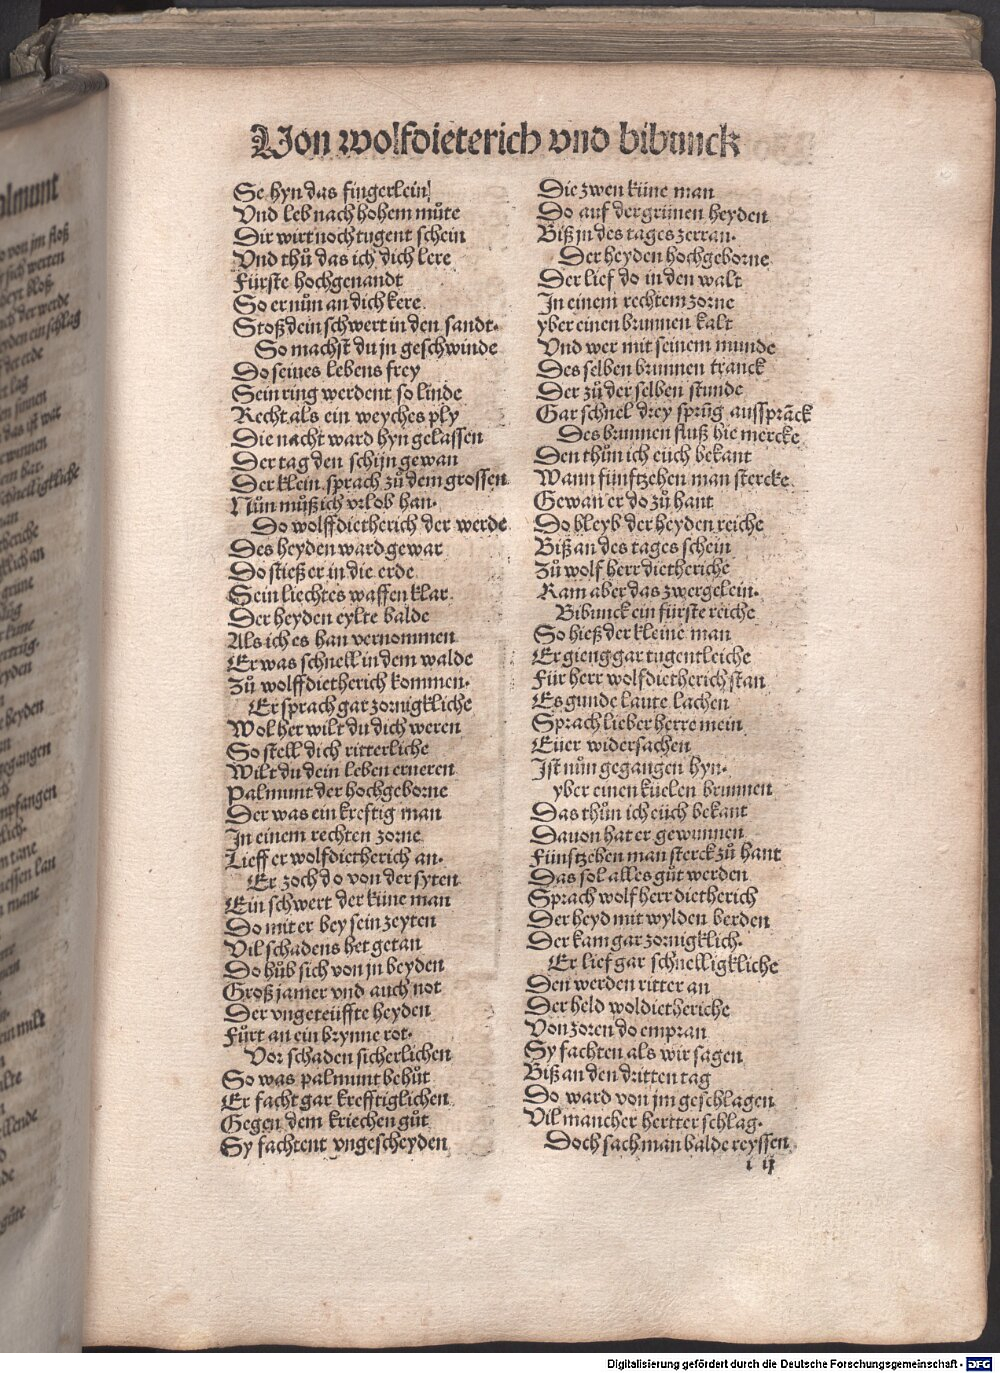 Von wolfdieterich vnd bibunck
Se hyn das fingerlein
Vnd leb nach hohem můte
Dir wirt noch tugent schein
Vnd thů das ich dich lere
Fürste hochgenandt
So er nůn an dich kere
Stoß dein schwert in den sandt.
So machst du jn geschwinde
Do seines lebens frey
Sein ring werdent so linde
Recht als ein weyches ply
Die nacht ward hyn gelassen
Der tag den schijn gewan
Der klein sprach zů dem grossen
Nůn můß ich vrlob han.
Do wolffdietherich der werde
Des heyden ward gewar
Do stieß er in die erde
Sein liechtes waffen klar
Der heyden eylte balde
Als ich es han vernommen
Er was schnell in dem walde
Zů wolffdietherich kommen.
Er sprach gar zornigkliche
Wol her wilt du dich weren
So stell dich ritterliche
Wilt du dein leben erneren
Palmunt der hochgeborne
Der was ein kreftig man
In einem rechten zorne
Lieff er wolfdietherich an.
Er zoch do von der syten
Ein schwert der küne man
Do mit er bey sein zeyten
Vil schadens het getan
Do hůb sich von jn beyden
Groß jamer vnd auch not
Der vngeteüffte heyden
Fůrt an ein brynne rot.
Vor schaden sicherlichen
So was palmunt behůt
Er facht gar krefftiglichen
Gegen dem kriechen gůt
Sy fachtent vngescheyden
Die zwen küne man
Do auf der grünen heyden
Biß jn des tages zerran.
Der heyden hochgeborne
Der lief do in den walt
In einem rechtem zorne
yber einen brunnen kalt
Vnd wer mit seinem munde
Des selben brunnen tranck
Der zů der selben stunde
Gar schnel drey sprüg ausspräck
Des brunnen fluß hie mercke
Den thůn ich eüch bekant
Wann fünftzehen man stercke
Gewan er do zů hant
Do bleyb der heyden reiche
Biß an des tages schein
Zů wolf herr dietheriche
Kam aber das zwergelein.
Bibunck ein fürste reiche
So hieß der kleine man
Er gieng gar tugentleiche
Für herr wolfdietherich stan
Es gunde laute lachen
Sprach lieber herre mein
Eüer widersachen
Ist nůn gegangen hyn.
yber einen kuelen brunnen
Das thůn ich eüch bekant
Dauon hat er gewunnen
Fünftzehen man sterck zů hant
Das sol alles gůt werden
Sprach wolf herr dietherich
Der heyd mit wylden berden
Der kam gar zornigklich.
Er lief gar schnelligkliche
Den werden ritter an
Der held woldietheriche
Von zoren do empran
Sy fachten als wir sagen
Biß an den dritten tag
Do ward von jm geschlagen
Vil mancher hertter schlag.
Doch sach man balde reyssen
i ij
Digitalisierung gefördert durch die Deutsche Forschungsgemeinschaft - DFG